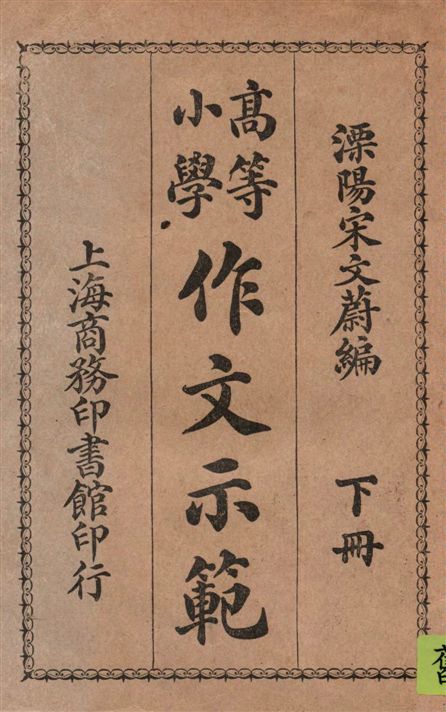 溧陽宋文蔚編 下冊
高等
小學
作文示範
上海商務印書館印行
舊